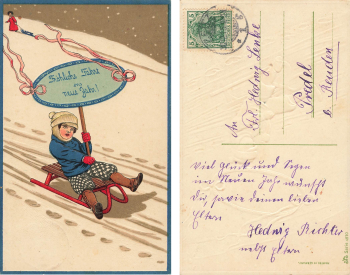 Fröhliche Fahrt
ins
neue Jahr!
An
Frl. Hedwig Lenke
Pratel
b. Reuden
Viel Glück und Segen
im Neuen Jahr wünscht
Du, sowie deinen lieben
Eltern
Hedwig Richter
nebst Eltern